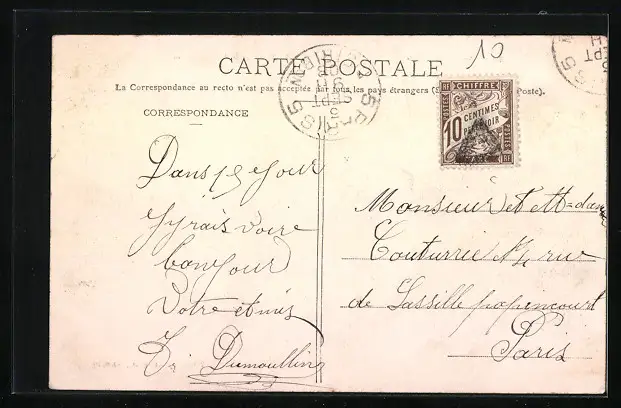 10
CARTE POSTALE
La Correspondance au recto n'est pas acceptée par tous les pays étrangers Poste).
CORRESPONDANCE
PARIS
SEPT
CHIFFRE
POSTES
10 CENTIMES
A PERCEVOIR
RF RF
Dans 15 Jour
J'yrais voire
bonjour
Votre amis
Dumoullin
Monsieur et M=dam
Couturrie rue
de Lassille popincourt
Paris